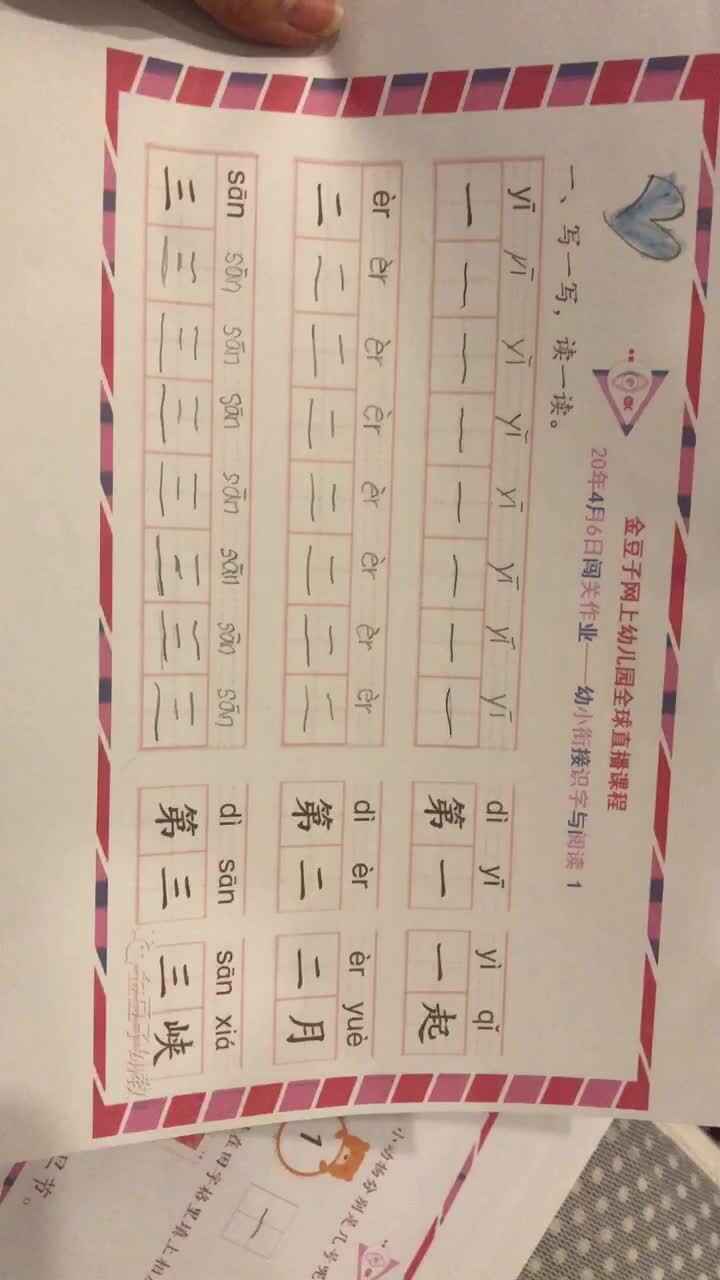 金豆子网上幼儿园全球直播课程
20年4月6日闯关作业——幼小衔接识字与阅读 1
一、写一写，读一读。
yī yī yī yī yī yī yī yī dì yī yì qǐ
一 一 一 一 一 一 一 一 第 一 一 起
èr èr èr èr èr èr èr èr dì èr èr yuè
二 二 二 二 二 二 二 二 第 二 二 月
sān sān sān sān sān sān sān sān dì sān sān xiá
三 三 三 三 三 三 三 三 第 三 三 峡
小动物分别是几号呢
1
在田字格里填上相
一